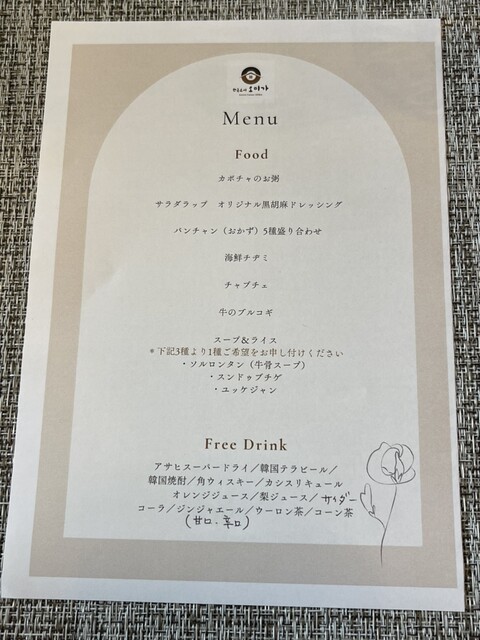 Menu
Food
カボチャのお粥
サラダラップ　オリジナル黒胡麻ドレッシング
バンチャン（おかず）5種盛り合わせ
海鮮チヂミ
チャプチェ
牛のプルコギ
スープ＆ライス
＊下記3種より1種ご希望をお申し付けください
・ソルロンタン（牛骨スープ）
・スンドゥブチゲ
・ユッケジャン
Free Drink
アサヒスーパードライ／韓国テラビール／
韓国焼酎／角ウィスキー／カシスリキュール
オレンジジュース／梨ジュース／サイダー
コーラ／ジンジャエール／ウーロン茶／コーン茶
(甘口、辛口)